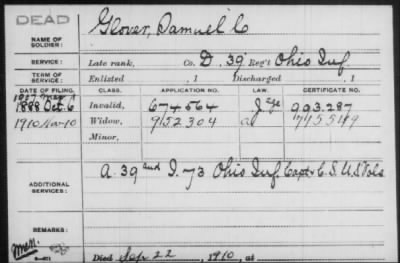 DEAD
NAME OF SOLDIER: Glover, Samuel C
SERVICE: Late rank, Co. D, 39 Reg't Ohio Inf.
TERM OF SERVICE: Enlisted , 1 Discharged , 1
DATE OF FILING. CLASS. APPLICATION NO. LAW. CERTIFICATE NO.
1907
1888 Oct. 6 Invalid, 674.564 993.287
1910 Nov 10 Widow, 952304
Minor,
ADDITIONAL SERVICES: A. 39 and I. 73 Ohio Inf. Capt & C.S. U.S. Vols
REMARKS:
Died Sep. 22, 1910, at